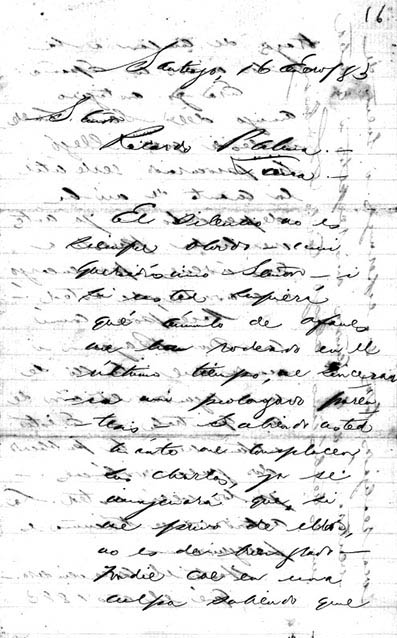 16
Santiago, 16 enero /83
Señor
Ricardo Palma.—
Lima.—
El silencio no es
siempre olvido, mi
queridísimo Señor — i
si usted supiera
qué cúmulo de afanes
me han rodeado en el
último tiempo,
mi prolongado parén
tesis. Sabiendo usted
cuanto me complacen
sus charlas, ya se
imaginará que, si
me privo de ellas,
no es de buen grado —
Nadie cae en una
culpa sabiendo que